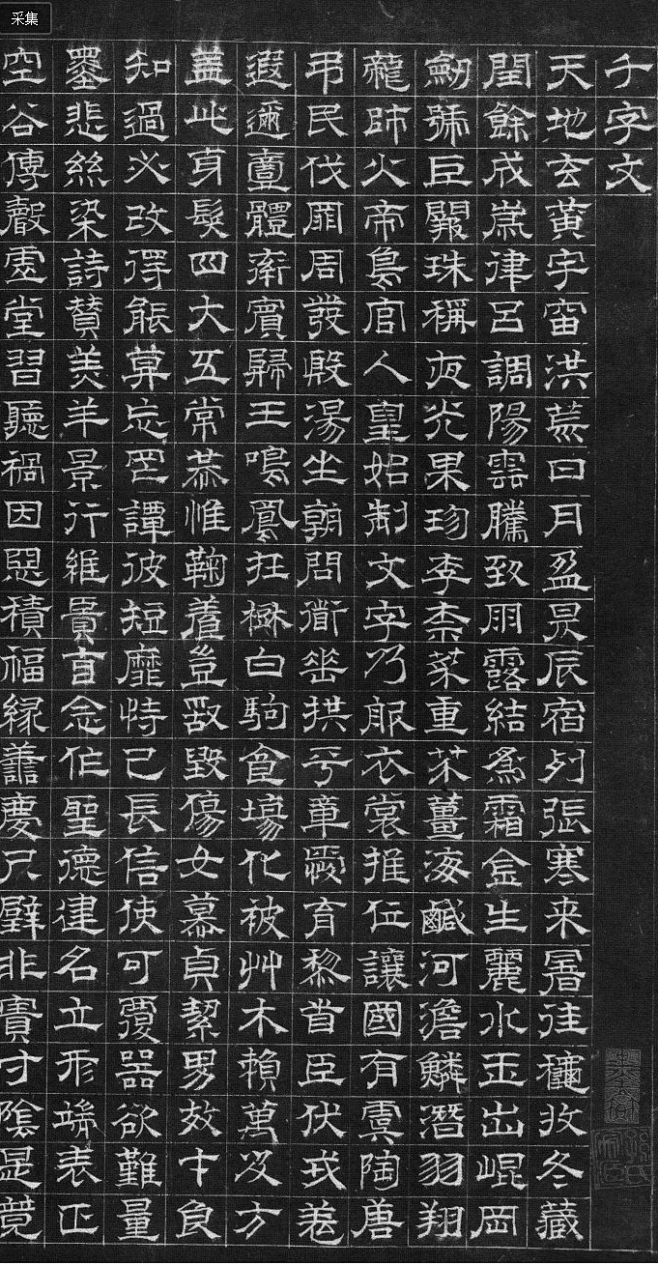 采集
千字文
天地玄黄宇宙洪荒日月盈昃辰宿列張寒来暑往穐收冬藏
閏餘成歲律呂調陽雲騰致雨露結為霜金生麗水玉出崐岡
劒號巨闕珠稱夜光果珍李柰菜重芥薑海鹹河澹鱗潛羽翔
龍師火帝鳥官人皇始制文字乃服衣裳推位讓國有虞陶唐
弔民伐罪周發殷湯坐朝問道垂拱平章愛育黎首臣伏戎羌
遐邇壹體率賓歸王鳴鳳在樹白駒食場化被艸木賴萬及方
蓋此身髮四大五常恭惟鞠養豈敢毀傷女慕貞絜男效才良
知過必改得能莫忘罔譚彼短靡恃己長信使可覆器欲難量
墨悲絲染詩贊羔羊景行維賢克念作聖德建名立形端表正
空谷傳聲虛堂習聽禍因惡積福緣善慶尺璧非寶寸陰是競